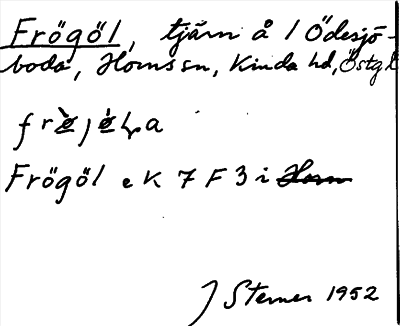 Frögöl, tjärn å 1 Ödesjö-
boda, Horns sn, Kinda hd, Östg l
Frögöl ek 7 F 3 i Horn
J Sterner 1952